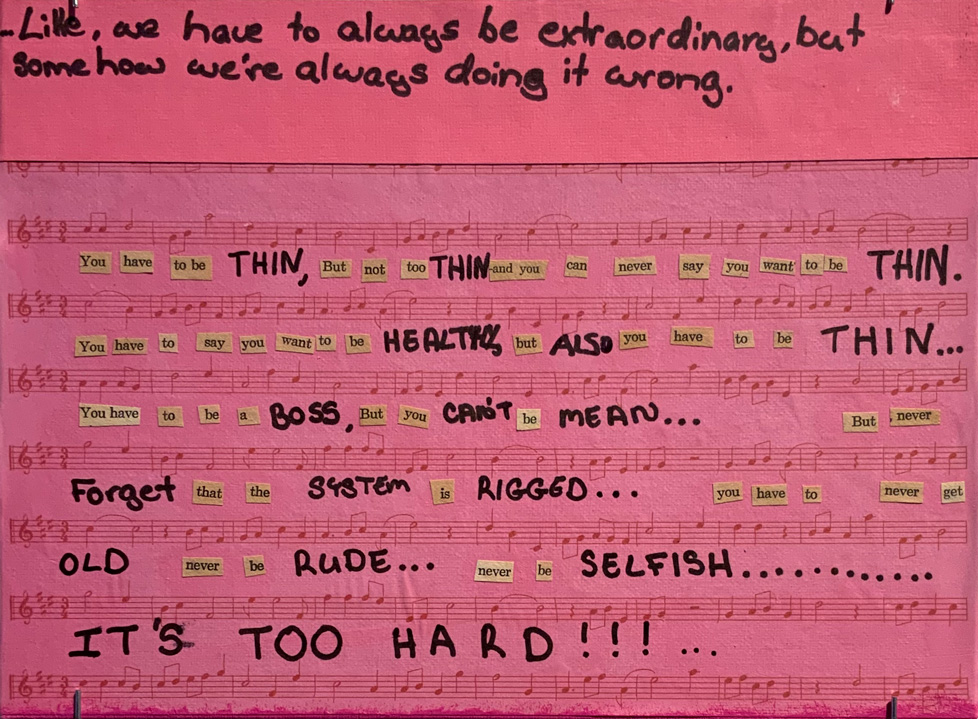 -Like, we have to always be extraordinary, but
somehow we're always doing it wrong.
You have to be THIN, But not too THIN and you can never say you want to be THIN.
You have to say you want to be HEALTHY, but ALSO you have to be THIN...
You have to be a BOSS, But you CAN'T be MEAN... But never
Forget that the SYSTEM is RIGGED... you have to never get
OLD never be RUDE... never be SELFISH............
IT'S TOO HARD!!!...